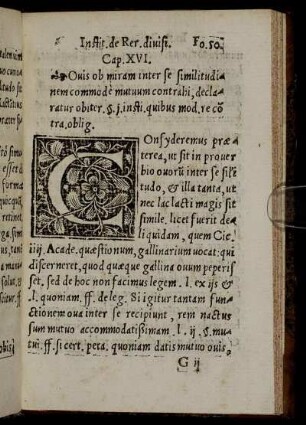 Instit. de Rer. divisi. Fo. 50.
Cap. XVI.
Ovis ob miram inter se similitudi
nem commodè mutuum contrahi, decla
ratur obiter. §. j. insti. quibus mod. re cō
tra. oblig.
COnsyderemus præ
terea, ut sit in prouer
bio ovorū inter se sili
tudo, & illa tanta, ut
nec lac lacti magis sit
simile. licet fuerit de
liquidam, quem Cic.
iiij. Acade. quæstionum, gallinarium uocat: qui
discerneret, quod quæque gallina ouum peperis
set, sed de hoc non facimus legem. l. ex ijs &
l. quoniam. ff. de leg. Si igitur tantam fun
ctionem oua inter se recipiunt, rem nactus
sum mutuo accommodatissimam. l. ij. §. mu
tui. ff. si cert. peta. quoniam datis mutuo ouis,
G ij